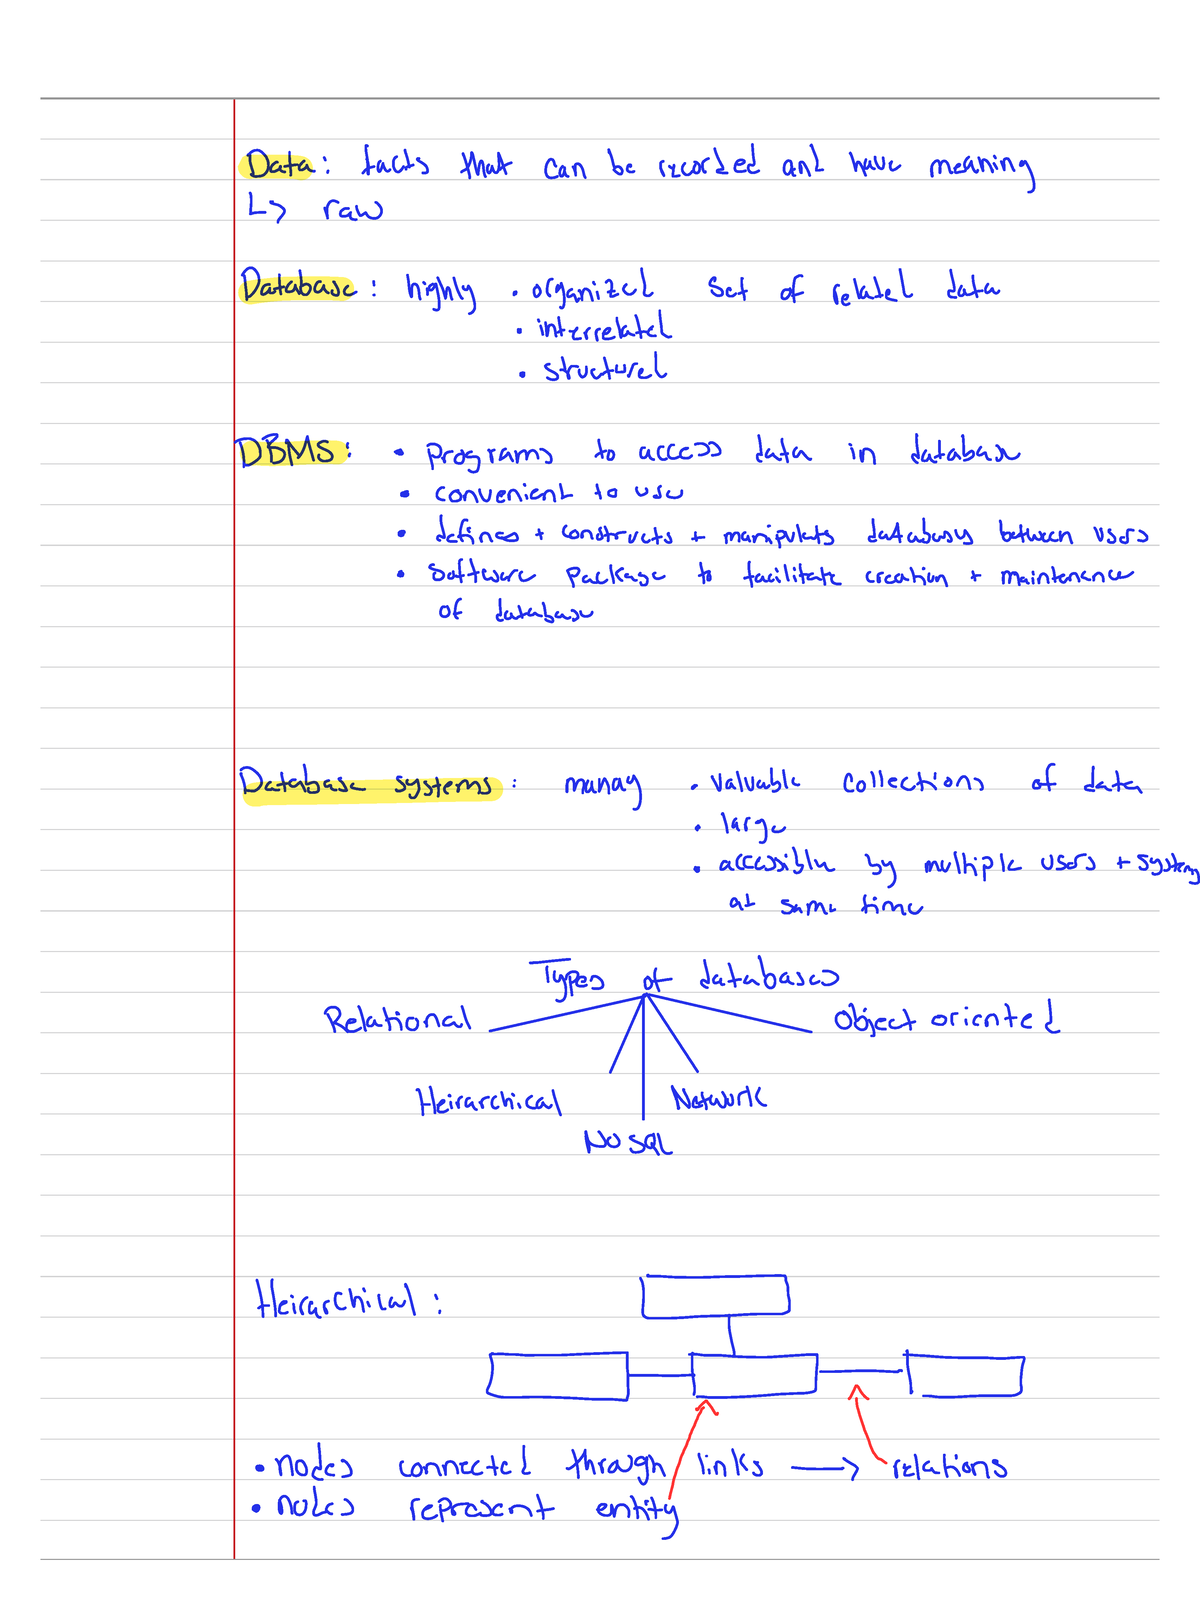 Data: facts that can be recorded and have meaning
↳ raw
Database: highly • organized set of related data
• interrelated
• structured
DBMS: • programs to access data in database
• convenient to use
• defines + constructs + manipulats databases between users
• software package to facilitate creation + maintenence
of database
Database systems: manag • valuable collections of data
• large
• accessible by multiple users + systems
at same time
Types of databases
Relational Object oriented
Heirarchical Network
NoSQL
Heirarchical:
• nodes connected through links → relations
• nodes represent entity